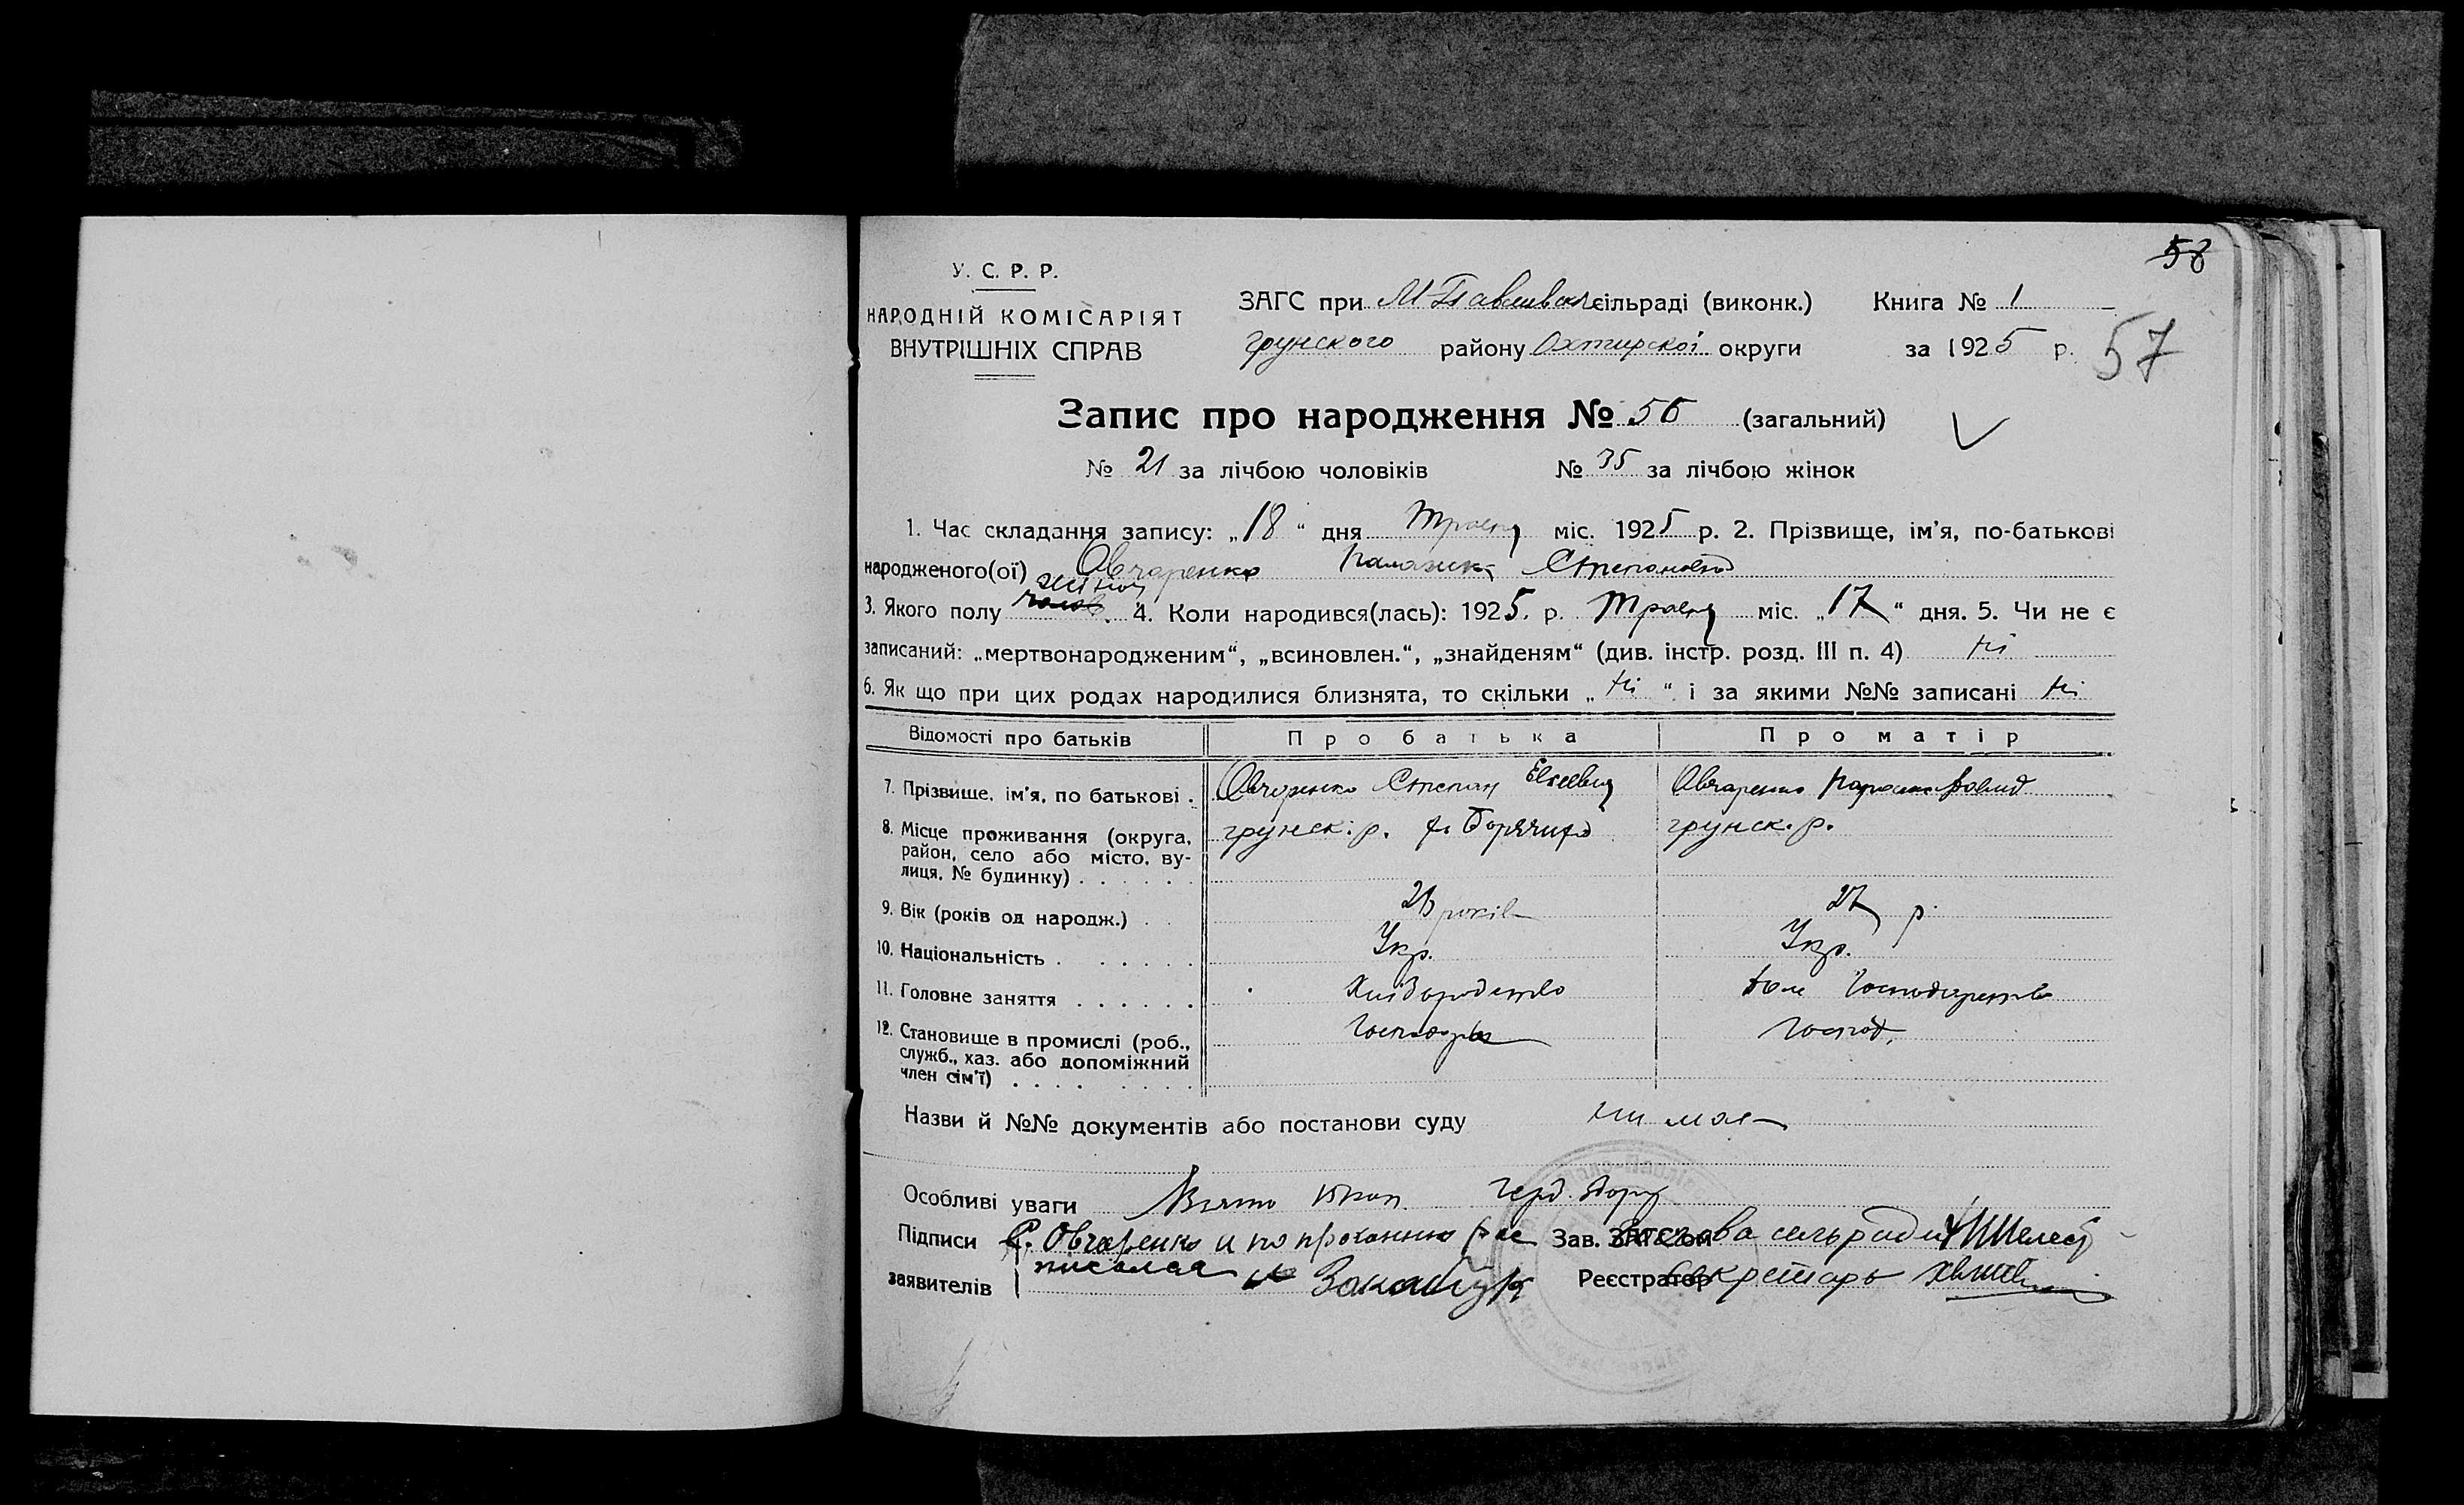 58
У. С. Р. Р.
НАРОДНІЙ КОМІСАРІЯТ
ВНУТРІШНІХ СПРАВ
ЗАГС при М-Павлівськ сільраді (виконк.) Книга № 1
грунского району Охтирскої округи за 1925 р. 57
Запис про народження № 56 (загальний)
№ 21 за лічбою чоловіків № 35 за лічбою жінок
1. Час складання запису: „18“ дня Травня міс. 1925 р. 2. Прізвище, ім'я, по-батькові
народженого(ої) Овчаренко Палажка Степановна
3. Якого полу жіноч. 4. Коли народився(лась): 1925. р. Травня міс. „17“ дня. 5. Чи не є
записаний: „мертвонародженим“, „всиновлен.“, „знайденям“ (див. інстр. розд. III п. 4) Ні
6. Як що при цих родах народилися близнята, то скільки „Ні“ і за якими №№ записані Ні
Відомості про батьків Про батька Про матір
7. Прізвище, ім'я, по батькові . Овчаренко Степан Евсеевич Овчаренко Параска Давид
8. Місце проживання (округа, район, село або місто, вулиця, № будинку) . . . . . . грунск. р. грунск. р.
9. Вік (років од народж.) . . років 27 р.
10. Національність . . . . . . Укр. Укр.
11. Головне заняття . . . . . . Хліборобство дом Господарство
12. Становище в промислі (роб., служб., хаз. або допоміжний член сім'ї) . . . . . . . . Господарь Господ.
Назви й №№ документів або постанови суду ни має
Особливі уваги
Підписи С. Овчаренко и по проханню Зав. ЗАГСом Голова сельради Шелест
заявителів Реєстратор Секретарь